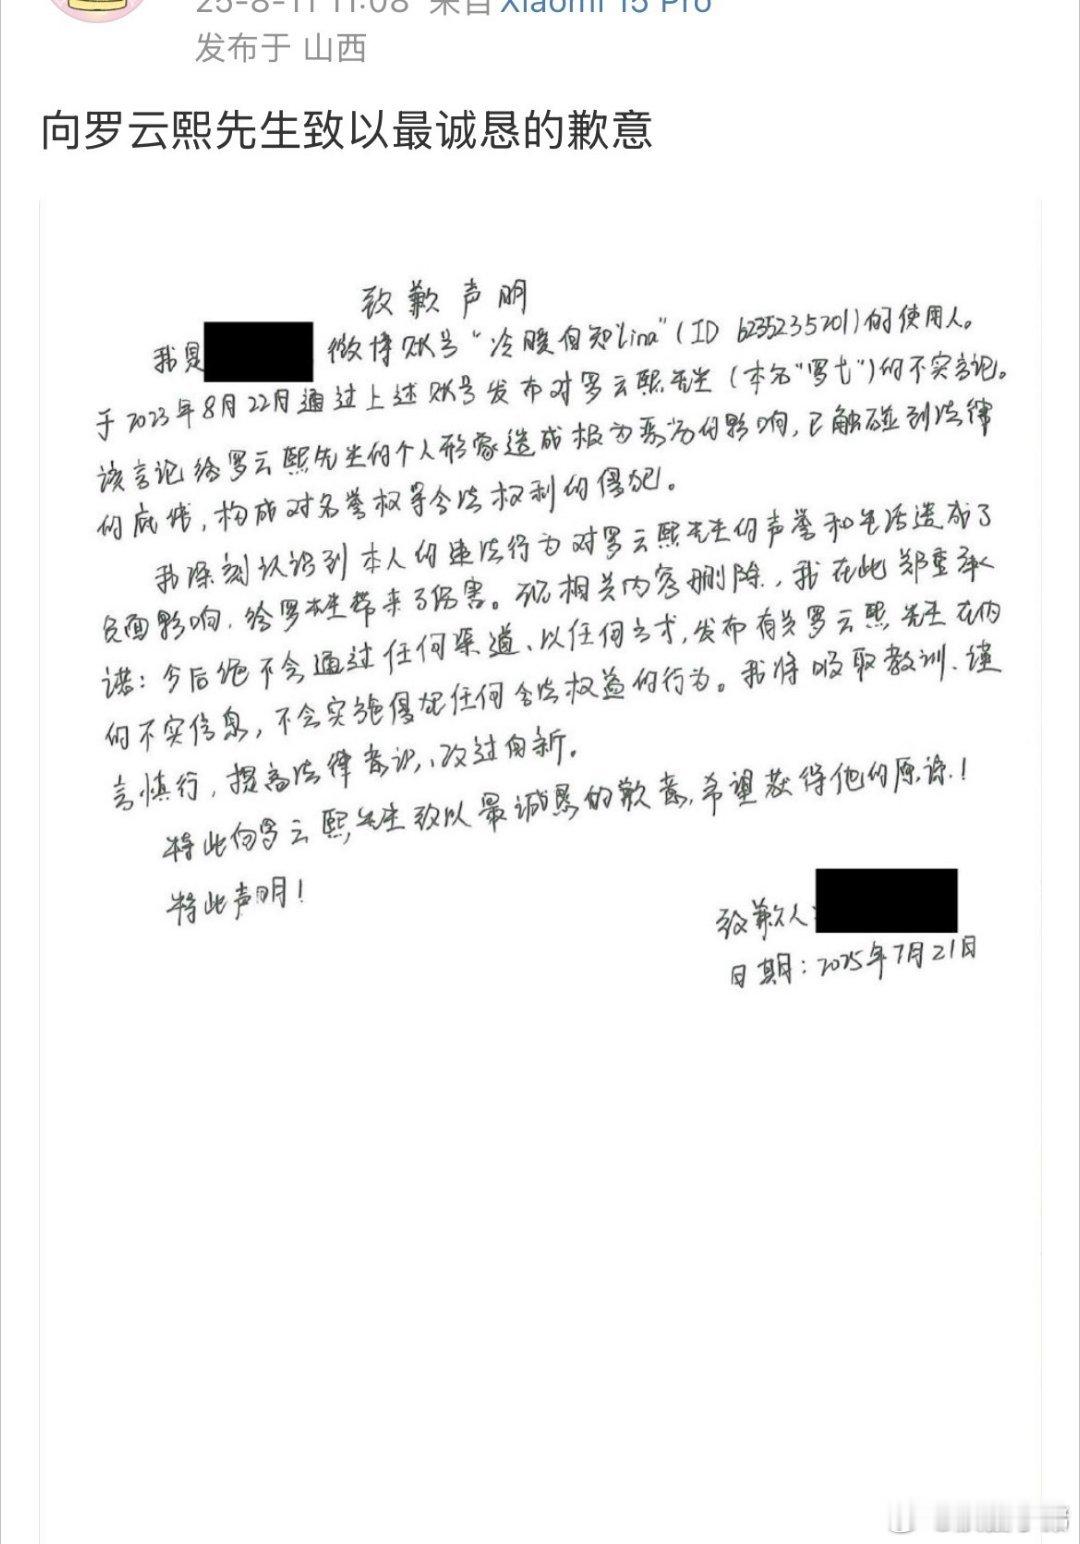 25-8-11 11:08 来自 Xiaomi 15 Pro
发布于 山西
向罗云熙先生致以最诚恳的歉意
致歉声明
我是 微博账号“冷暖自知Lina”(ID 6235235201)的使用人。
于2023年8月22日通过上述账号发布对罗云熙先生(本名“罗弋”)的不实言论。
该言论给罗云熙先生的个人形象造成极为恶劣的影响,已触碰到法律
的底线,构成对名誉权等合法权利的侵犯。
我深刻认识到本人的违法行为对罗云熙先生的声誉和生活造成了
负面影响,给罗先生带来了伤害。现相关内容删除,我在此郑重承
诺:今后绝不会通过任何渠道、以任何方式,发布有关罗云熙先生在内
的不实信息,不会实施侵犯任何合法权益的行为。我将吸取教训、谨
言慎行,提高法律意识,改过自新。
特此向罗云熙先生致以最诚恳的歉意,希望获得他的原谅!
特此声明!
致歉人:
日期:2025年7月21日